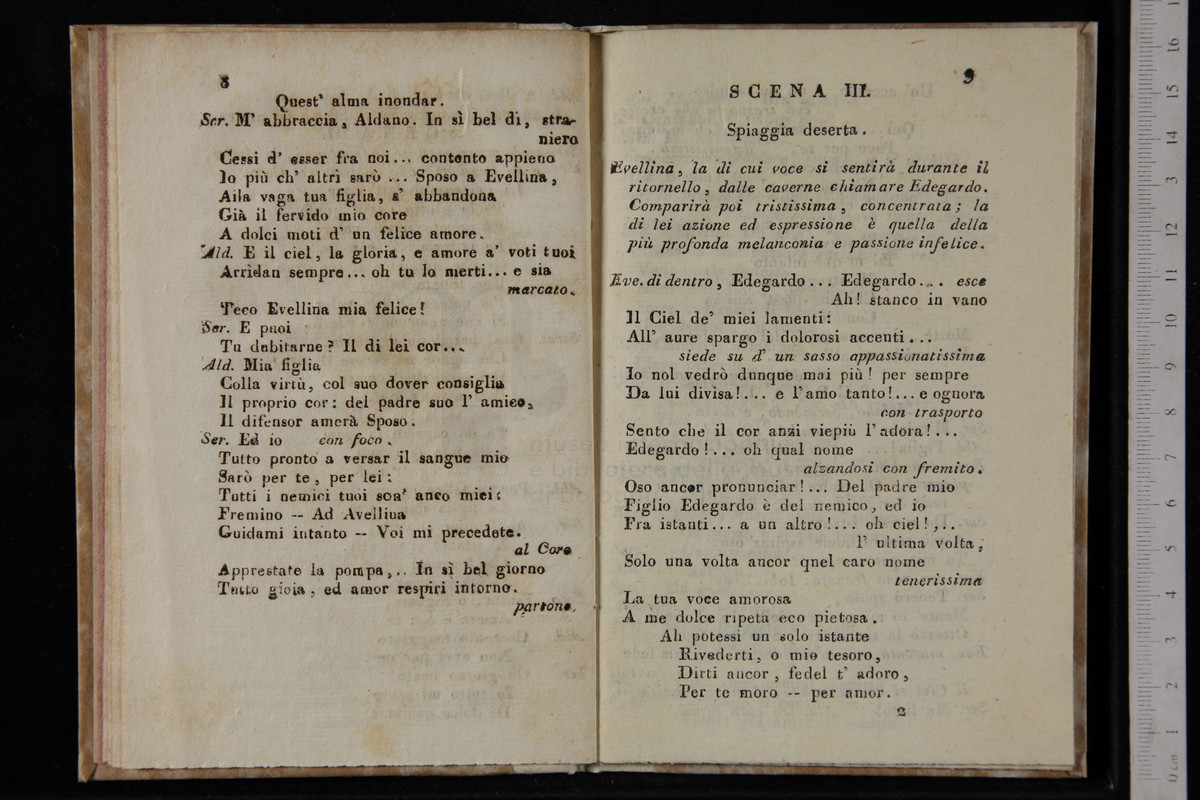 8
Quest' alma inondar.
Ser. M' abbraccia, Aldano. In sì bel dì, stra-
niero
Cessi d' esser fra noi... contento appieno
Io più ch' altri sarò ... Sposo a Evellina,
Alla vaga tua figlia, s' abbandona
Già il fervido mio core
A dolci moti d' un felice amore.
Ald. E il ciel, la gloria, e amore a' voti tuoi
Arridan sempre... oh tu lo merti... e sia
marcato.
Teco Evellina mia felice!
Ser. E puoi
Tu dubitarne? Il di lei cor...
Ald. Mia figlia
Colla virtù, col suo dover consiglia
Il proprio cor: del padre suo l' amico,
Il difensor amerà Sposo.
Ser. Ed io con foco.
Tutto pronto a versar il sangue mio
Sarò per te, per lei:
Tutti i nemici tuoi son' anco miei:
Fremino -- Ad Avellina
Guidami intanto -- Voi mi precedete.
al Coro
Apprestate la pompa,.. In sì bel giorno
Tutto gioia, ed amor respiri intorno.
partono.
9
SCENA III.
Spiaggia deserta.
Evellina, la di cui voce si sentirà durante il
ritornello, dalle caverne chiamare Edegardo.
Comparirà poi tristissima, concentrata; la
di lei azione ed espressione è quella della
più profonda melanconia e passione infelice.
Eve. di dentro, Edegardo... Edegardo... esce
Ah! stanco in vano
Il Ciel de' miei lamenti:
All' aure spargo i dolorosi accenti...
siede su d' un sasso appassionatissima
Io nol vedrò dunque mai più! per sempre
Da lui divisa!... e l'amo tanto!... e ognora
con trasporto
Sento che il cor anzi viepiù l'adora!...
Edegardo!... oh qual nome
alzandosi con fremito.
Oso ancor pronunciar!... Del padre mio
Figlio Edegardo è del nemico, ed io
Fra istanti... a un altro!... oh ciel!,..
l' ultima volta,
Solo una volta ancor quel caro nome
tenerissima
La tua voce amorosa
A me dolce ripeta eco pietosa.
Ah potessi un solo istante
Rivederti, o mio tesoro,
Dirti ancor, fedel t' adoro,
Per te moro -- per amor.
2